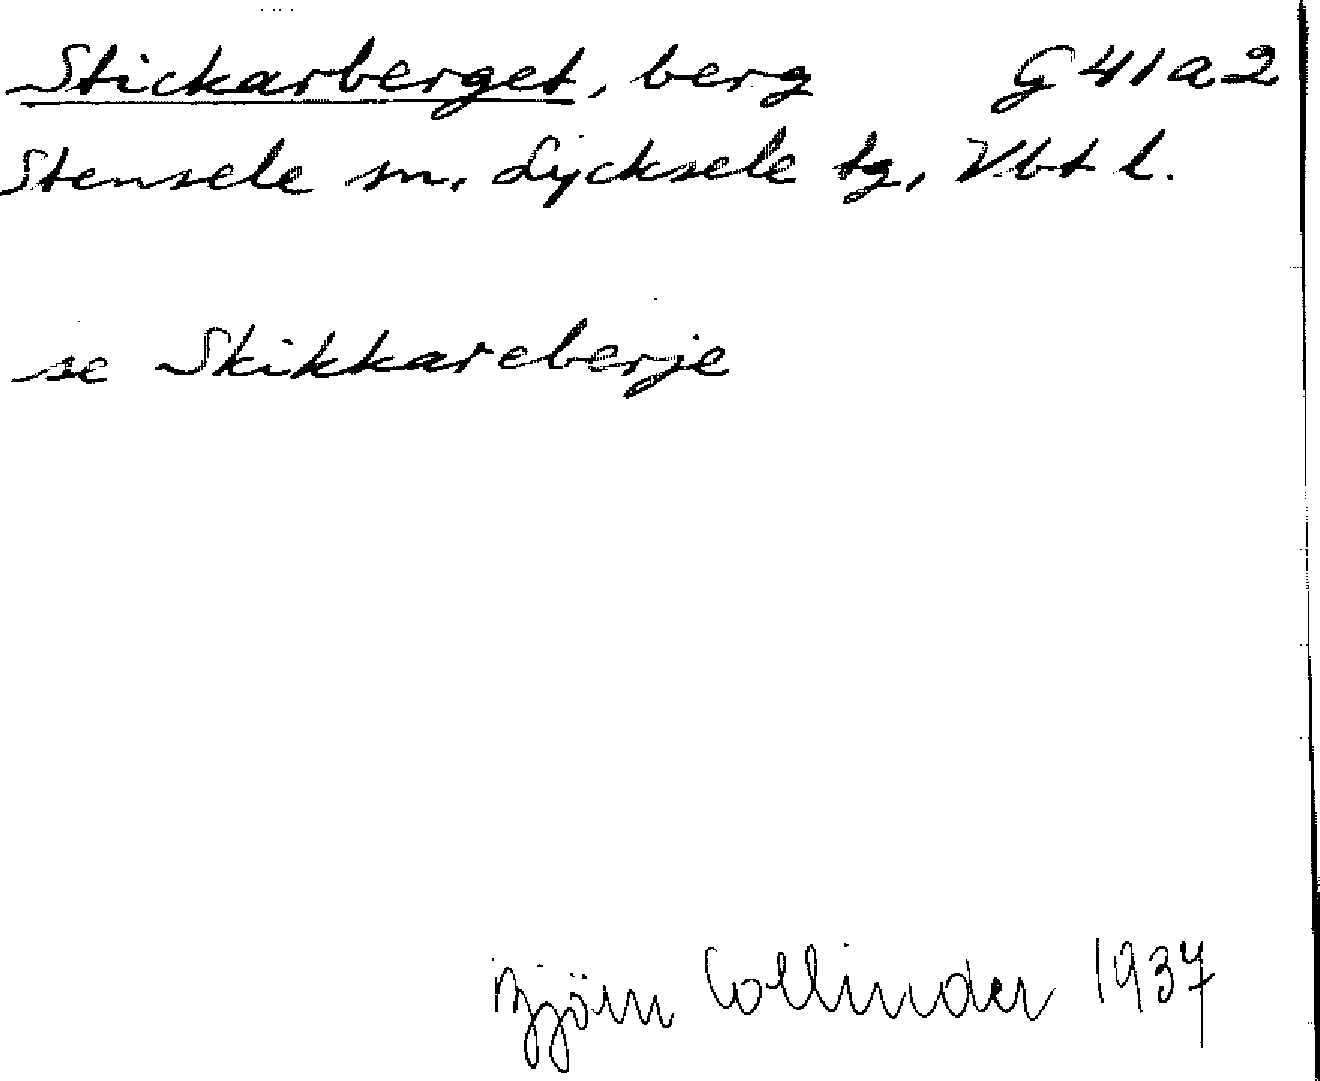 Stickarberget, berg G 41 a 2
Stensele sn, Lycksele tg, Vbt l.
se Skikkareberje
Björn Collinder 1937